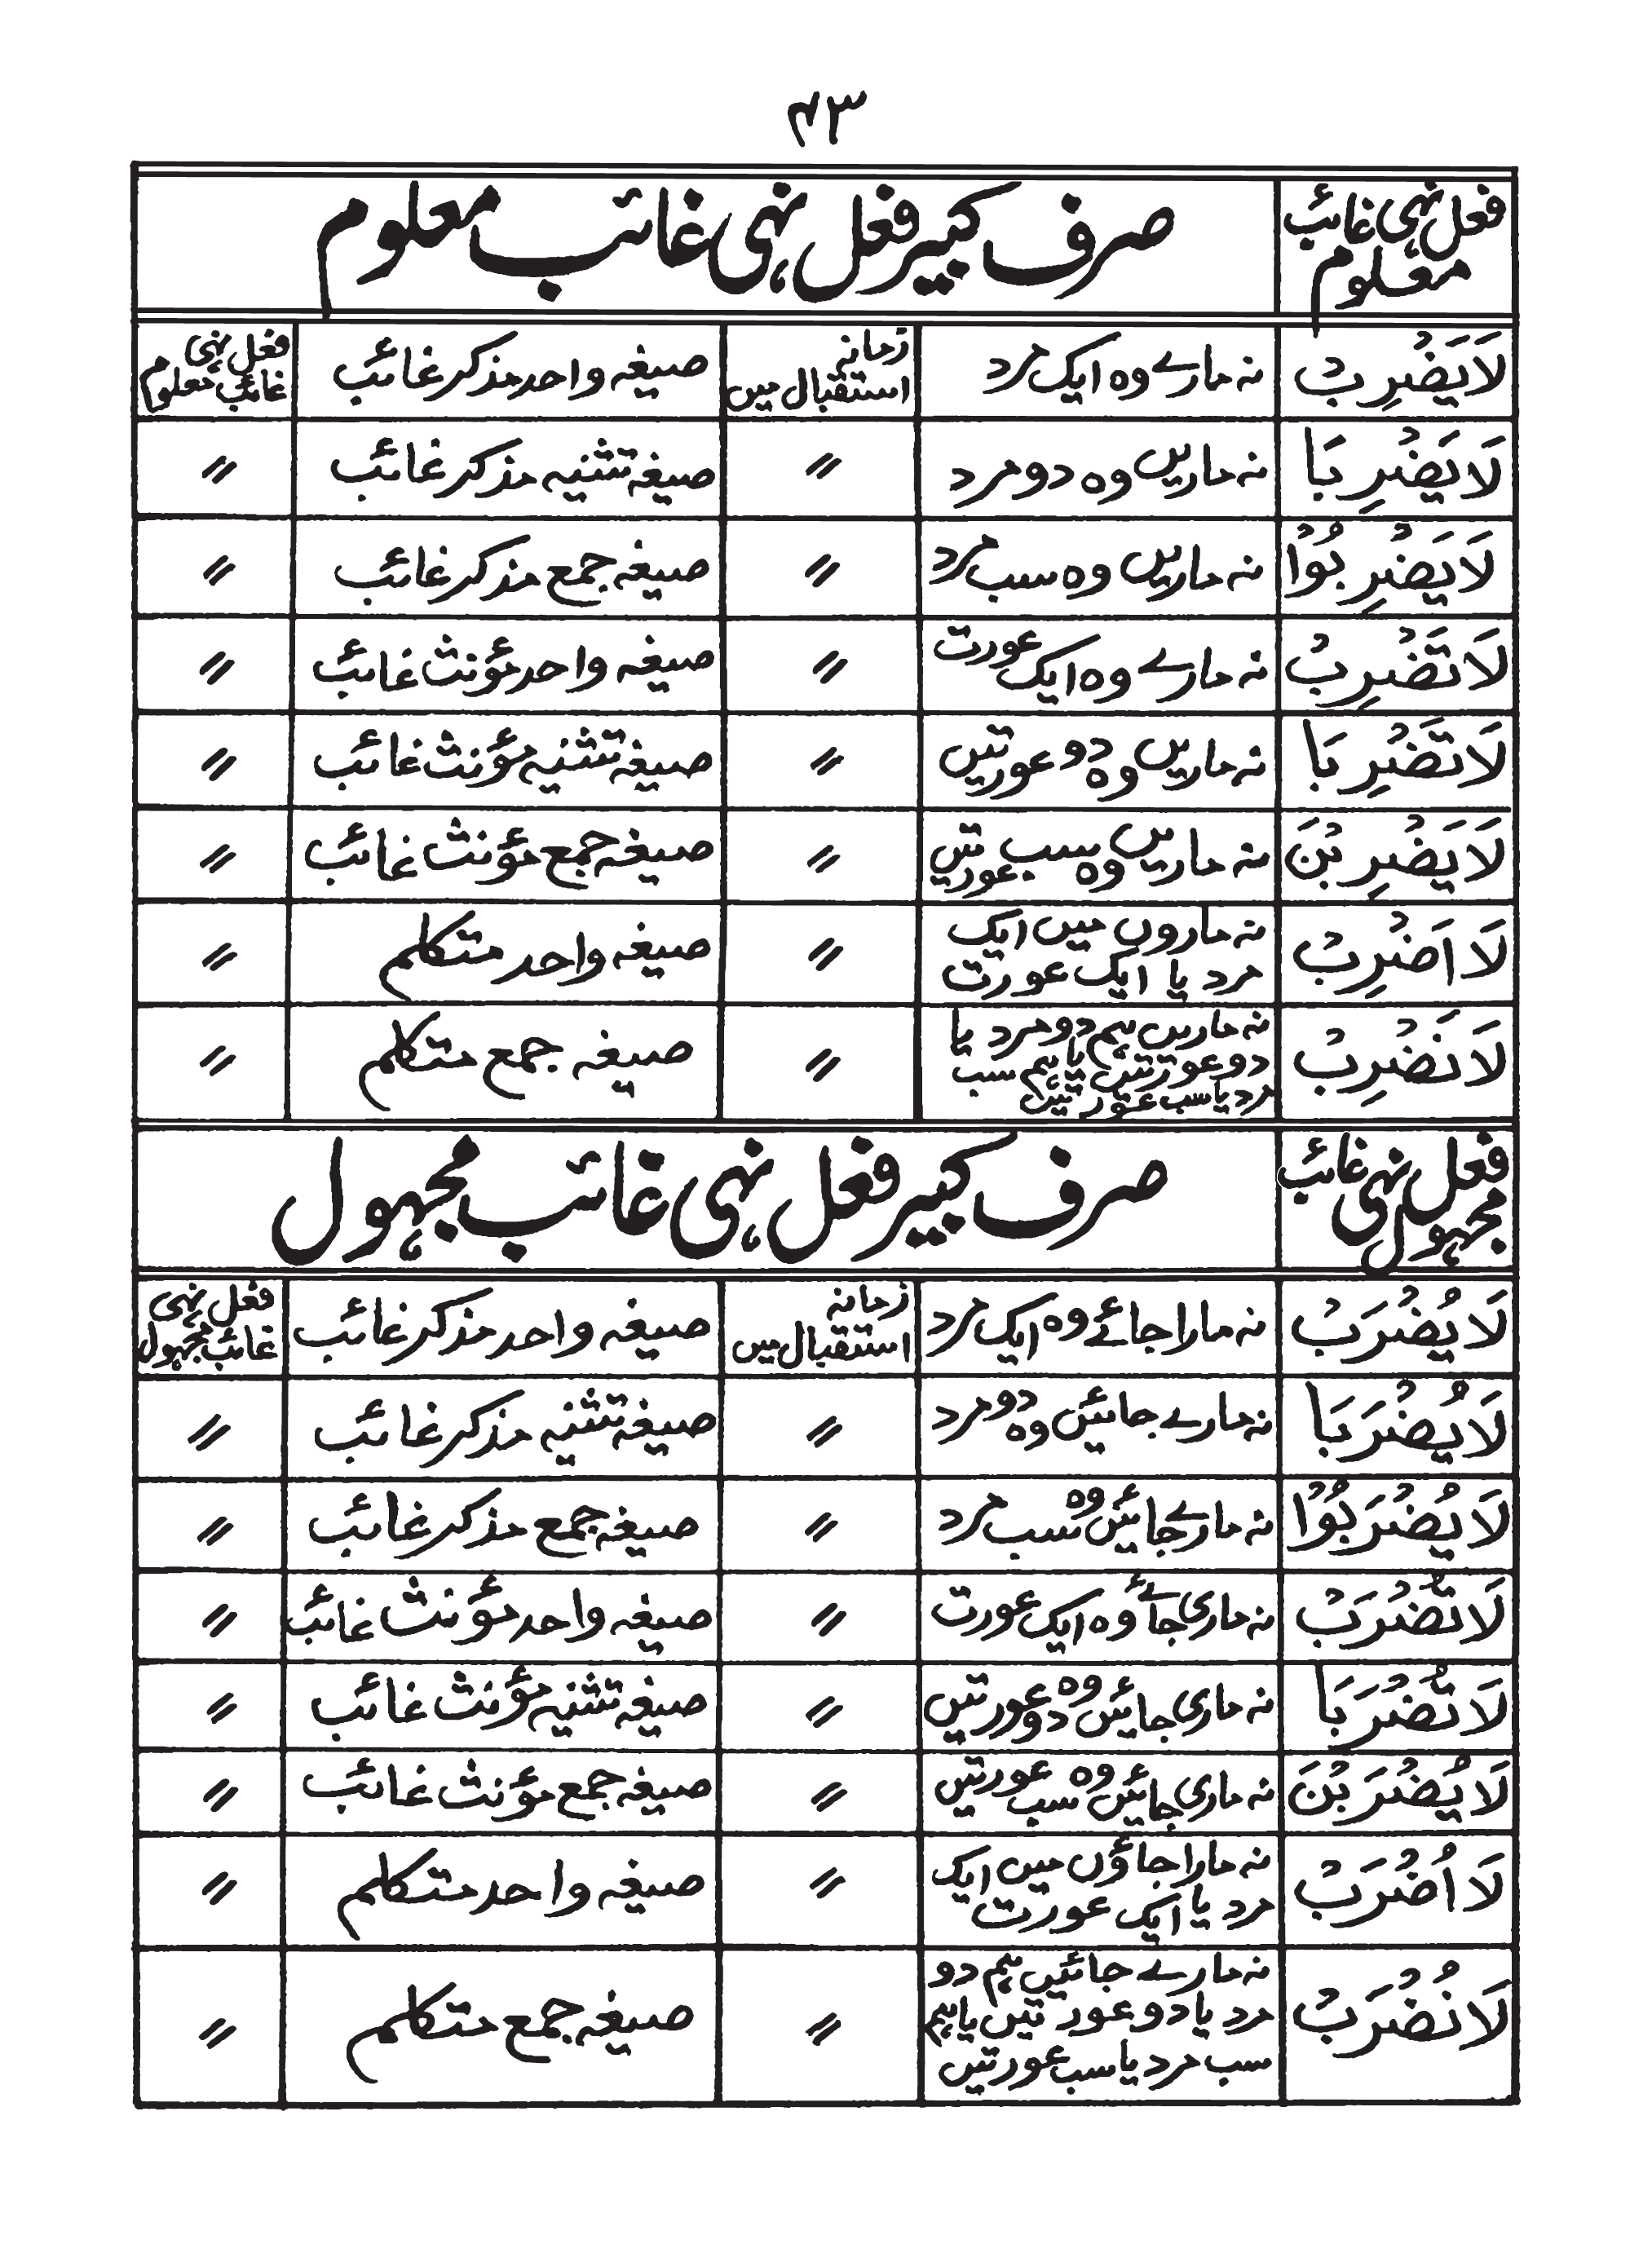 ۴۳
فعل نہی غائب معلوم صرف کبیر فعل نہی غائب معلوم
لَا یَضْرِبْ نہ مارے وہ ایک مرد زمانہ استقبال میں صیغہ واحد مذکر غائب فعل نہی غائب معلوم
لَا یَضْرِبَا نہ ماریں وہ دو مرد 〃 صیغہ تثنیہ مذکر غائب 〃
لَا یَضْرِبُوْا نہ ماریں وہ سب مرد 〃 صیغہ جمع مذکر غائب 〃
لَا تَضْرِبْ نہ مارے وہ ایک عورت 〃 صیغہ واحد مؤنث غائب 〃
لَا تَضْرِبَا نہ ماریں وہ دو عورتیں 〃 صیغہ تثنیہ مؤنث غائب 〃
لَا یَضْرِبْنَ نہ ماریں وہ سب عورتیں 〃 صیغہ جمع مؤنث غائب 〃
لَا اَضْرِبْ نہ ماروں میں ایک مرد یا ایک عورت 〃 صیغہ واحد متکلم 〃
لَا نَضْرِبْ نہ ماریں ہم دو مرد یا دو عورتیں یا ہم سب مرد یا سب عورتیں 〃 صیغہ جمع متکلم 〃
فعل نہی غائب مجہول صرف کبیر فعل نہی غائب مجہول
لَا یُضْرَبْ نہ مارا جائے وہ ایک مرد زمانہ استقبال میں صیغہ واحد مذکر غائب فعل نہی غائب مجہول
لَا یُضْرَبَا نہ مارے جائیں وہ دو مرد 〃 صیغہ تثنیہ مذکر غائب 〃
لَا یُضْرَبُوْا نہ مارے جائیں وہ سب مرد 〃 صیغہ جمع مذکر غائب 〃
لَا تُضْرَبْ نہ ماری جائے وہ ایک عورت 〃 صیغہ واحد مؤنث غائب 〃
لَا تُضْرَبَا نہ ماری جائیں وہ دو عورتیں 〃 صیغہ تثنیہ مؤنث غائب 〃
لَا یُضْرَبْنَ نہ ماری جائیں وہ سب عورتیں 〃 صیغہ جمع مؤنث غائب 〃
لَا اُضْرَبْ نہ مارا جاؤں میں ایک مرد یا ایک عورت 〃 صیغہ واحد متکلم 〃
لَا نُضْرَبْ نہ مارے جائیں ہم دو مرد یا دو عورتیں یا ہم سب مرد یا سب عورتیں 〃 صیغہ جمع متکلم 〃